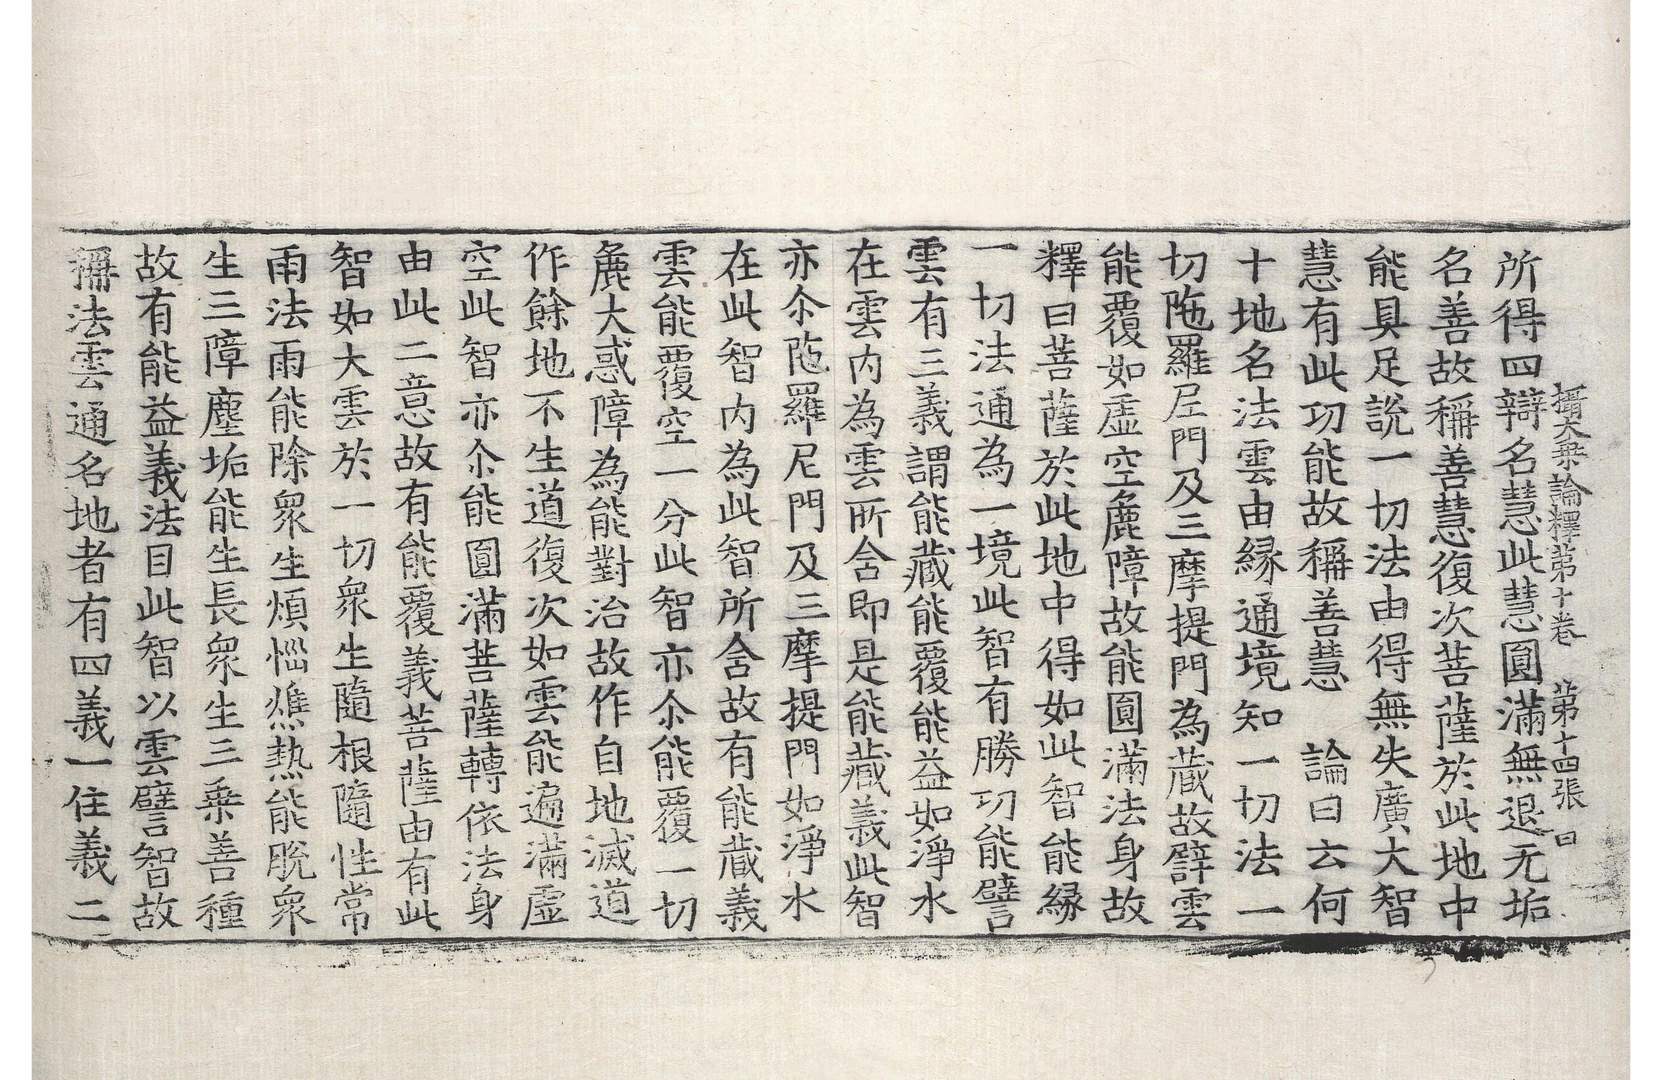 攝大乘論釋第十卷　第十四張　曰
所得四辯名慧此慧圓滿無退无垢
名善故稱善慧復次菩薩於此地中
能具足說一切法由得無失廣大智
慧有此功能故稱善慧　論曰云何
十地名法雲由縁通境知一切法一
切陁羅尼門及三摩提門為藏故譬雲
能覆如虛空麁障故能圓滿法身故
釋曰菩薩於此地中得如此智能縁
一切法通為一境此智有勝功能譬
雲有三義謂能藏能覆能益如淨水
在雲内為雲所含即是能藏義此智
亦尒陁羅尼門及三摩提門如淨水
在此智内為此智所含故有能藏義
雲能覆空一分此智亦尒能覆一切
麁大惑障為能對治故作自地滅道
作餘地不生道復次如雲能遍滿虛
空此智亦尒能圓滿菩薩轉依法身
由此二意故有能覆義菩薩由有此
智如大雲於一切衆生隨根隨性常
雨法雨能除衆生煩惱燋熱能脫衆
生三障塵垢能生長衆生三乗善種
故有能益義法目此智以雲譬智故
稱法雲通名地者有四義一住義二